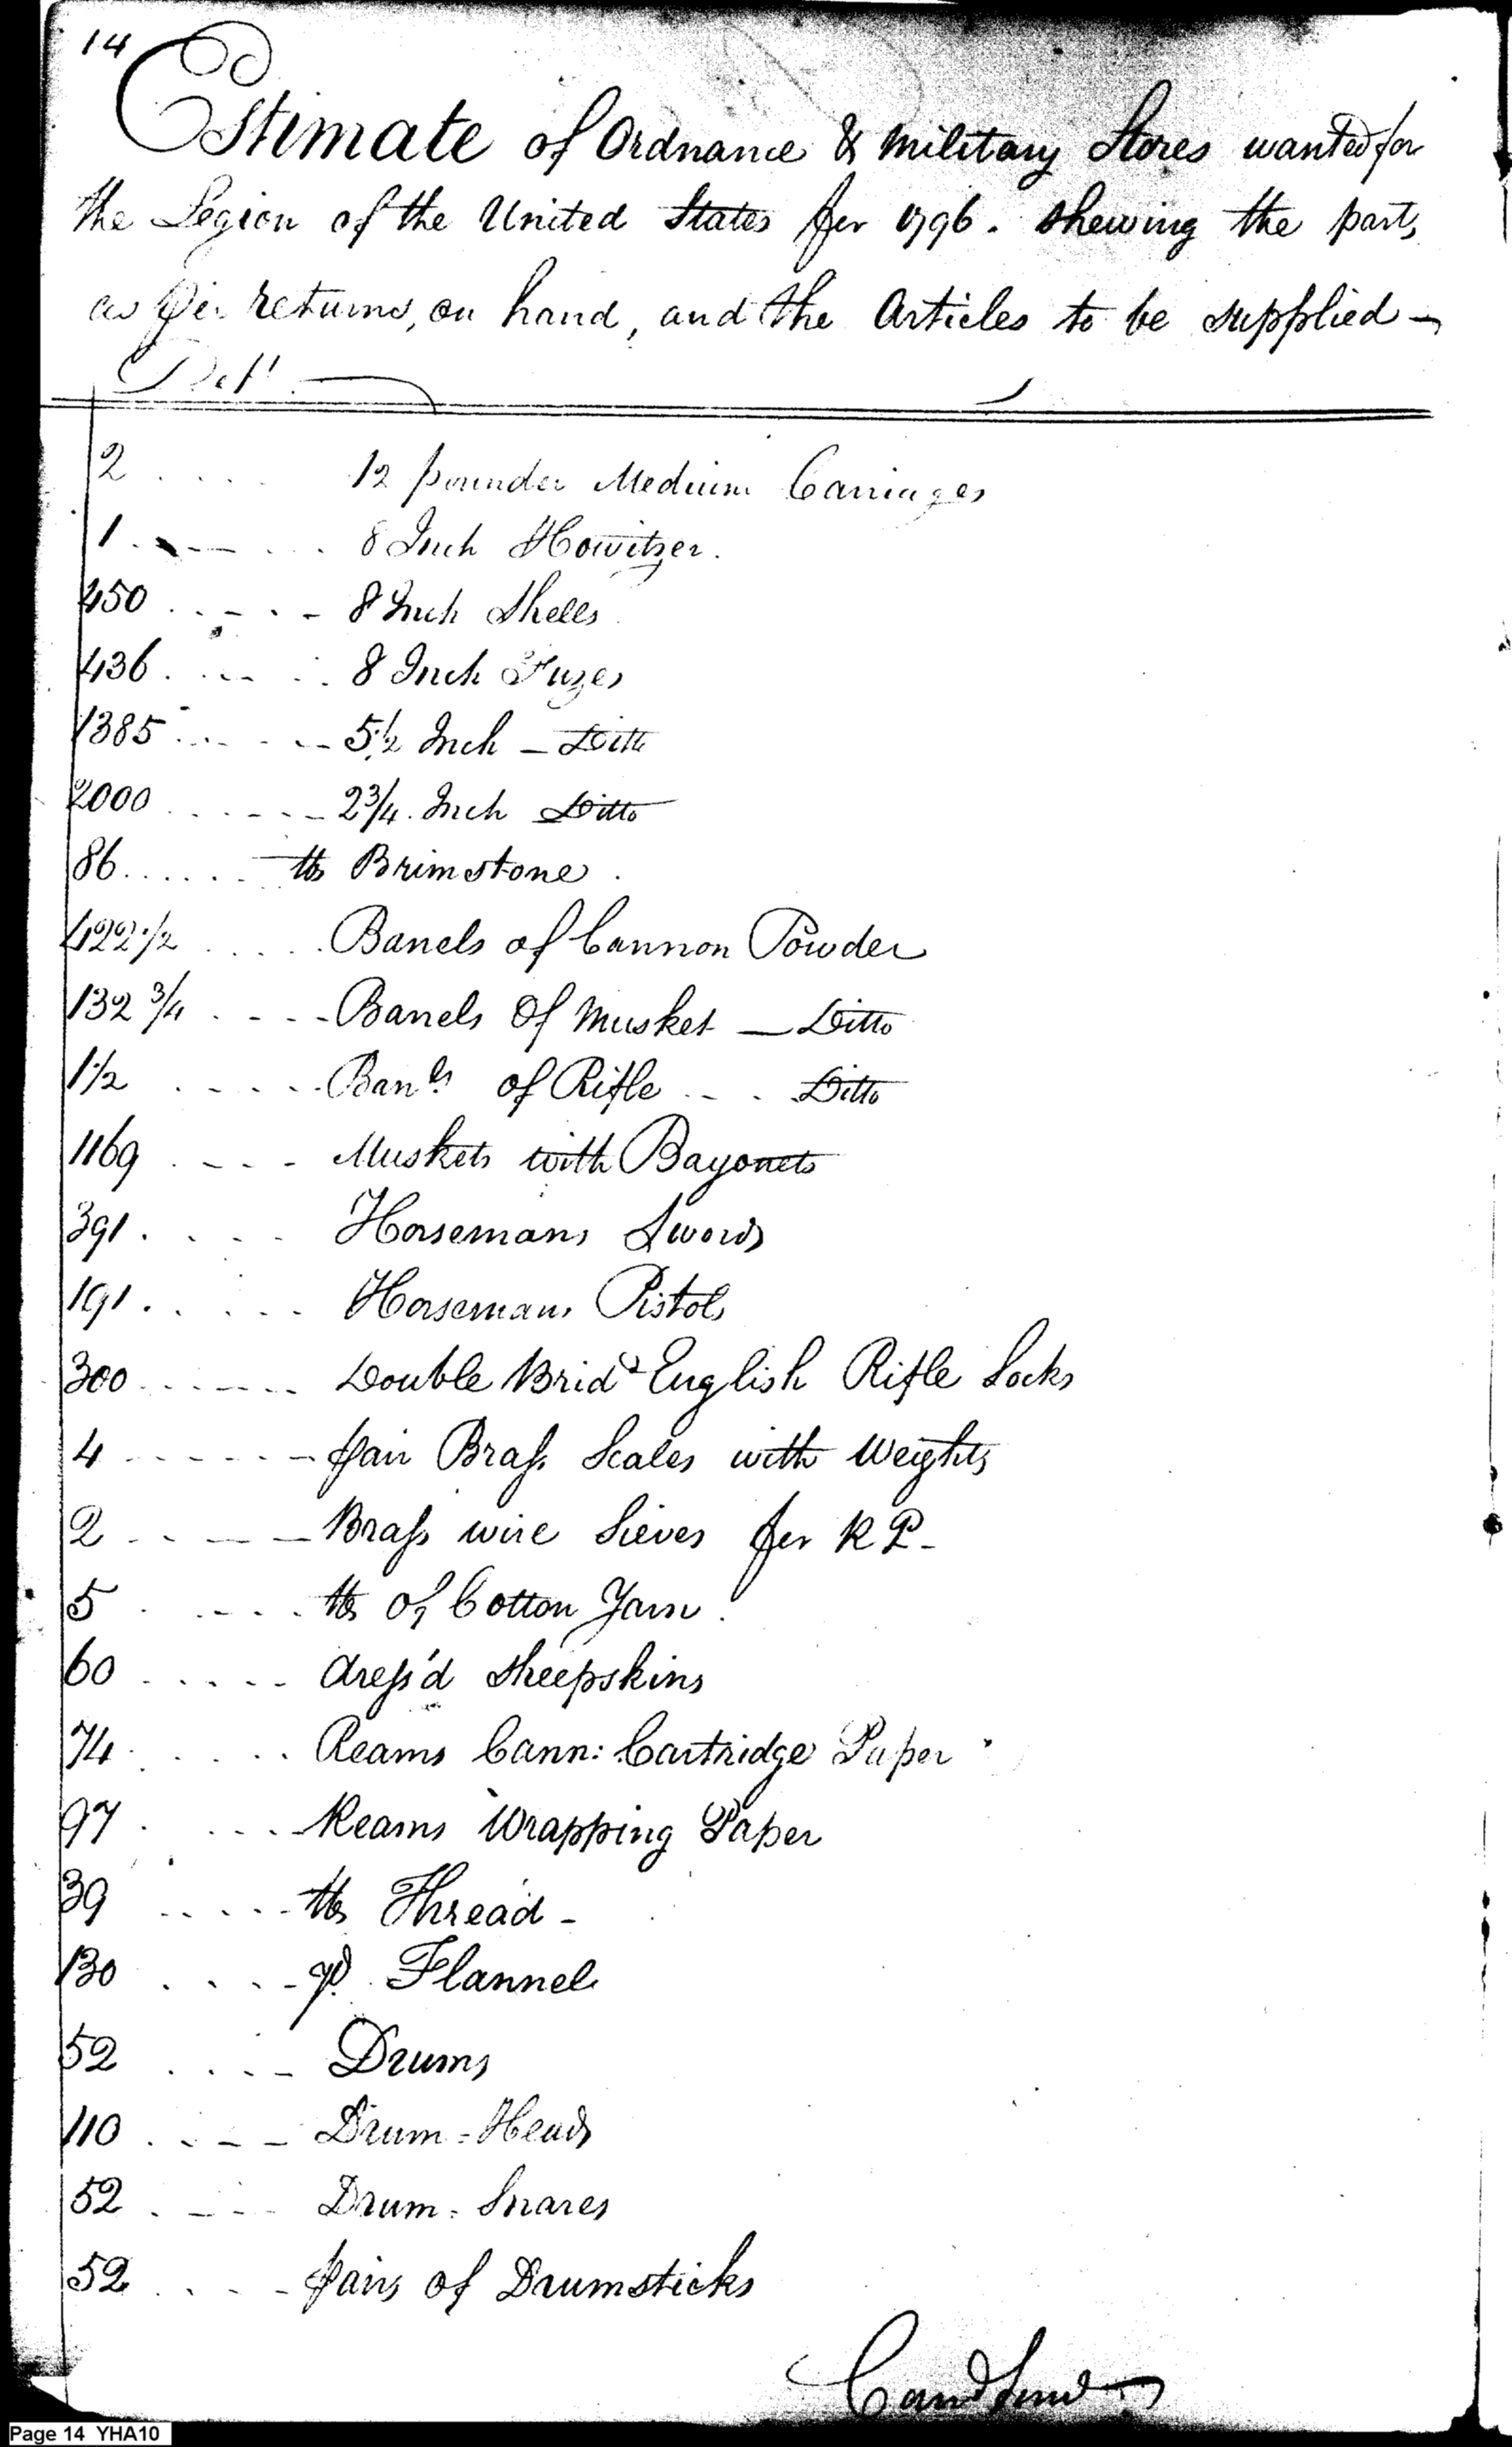 14
Estimate of Ordnance & Military Stores wanted for
the Legion of the United States for 1796. shewing the parts,
as per returns, on hand, and the Articles to be supplied –
2 .... 12 pounder Medium Carriages
1 .... 8 Inch Howitzer.
450 .... 8 Inch Shells
436 .... 8 Inch Fuzes
1385 .... 5 1/2 Inch – Ditto
2000 .... 2 3/4 Inch Ditto
86 .... lbs Brimstone.
422 1/2 .... Barrels of Cannon Powder
132 3/4 .... Barrels of Musket – Ditto
1 1/2 .... Barrls of Rifle .. Ditto
1169 .... Muskets with Bayonets
391 .... Horsemans Swords
191 .... Horsemans Pistols
300 .... Double Bridd English Rifle Locks
4 .... pair Brass Scales with Weights
2 .... Brass wire Sieves for R P –
5 .... lbs of Cotton Yarn.
60 .... dress'd sheepskins
74 .... Reams Cann: Cartridge Paper
97 .... Reams Wrapping Paper
39 .... lbs Thread –
130 .... yd. Flannel
52 .... Drums
110 .... Drum = Heads
52 .... Drum = Snares
52 .... pairs of Drumsticks
Page 14 YHA10